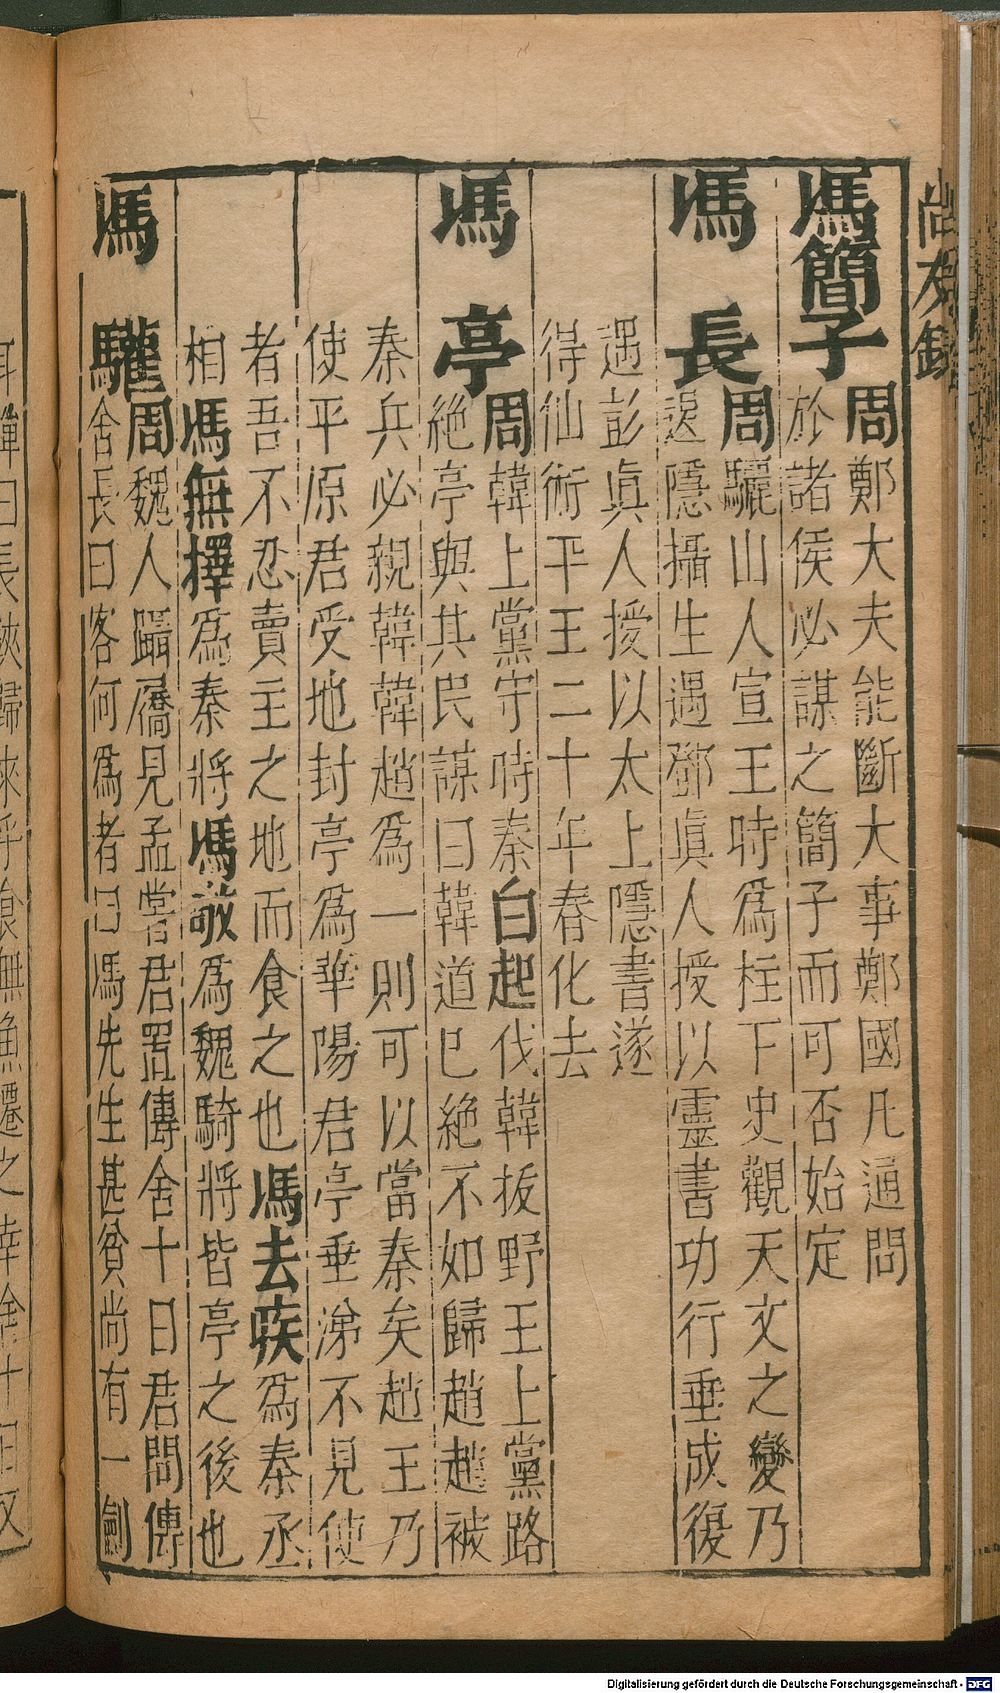 尚友錄
馮簡子
周鄭大夫能斷大事鄭國凡通問
於諸侯必謀之簡子而可否始定
馮長
周驪山人宣王時爲柱下史觀天文之變乃
退隱攝生遇鄧眞人授以靈書功行垂成復
遇彭眞人授以太上隱書遂
得仙術平王二十年春化去
馮亭
周韓上黨守時秦白起伐韓拔野王上黨路
絶亭與其民謀曰韓道已絶不如歸趙趙被
秦兵必親韓韓趙爲一則可以當秦矣趙王乃
使平原君受地封亭爲華陽君亭垂涕不見使
者吾不忍賣主之地而食之也馮去疾爲秦丞
相馮無擇爲秦將馮敬爲魏騎將皆亭之後也
馮驩
周魏人躡屩見孟嘗君置傳舍十日君問傳
舍長曰客何爲者曰馮先生甚貧尚有一劍
耳彈曰長鋏歸來乎食無魚遷之幸舍十日又
Digitalisierung gefördert durch die Deutsche Forschungsgemeinschaft - DFG